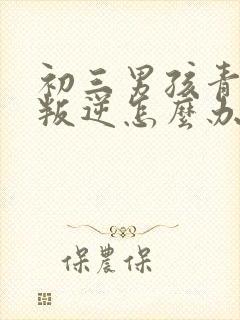 初三男孩青
叛逆怎麼办
保農保